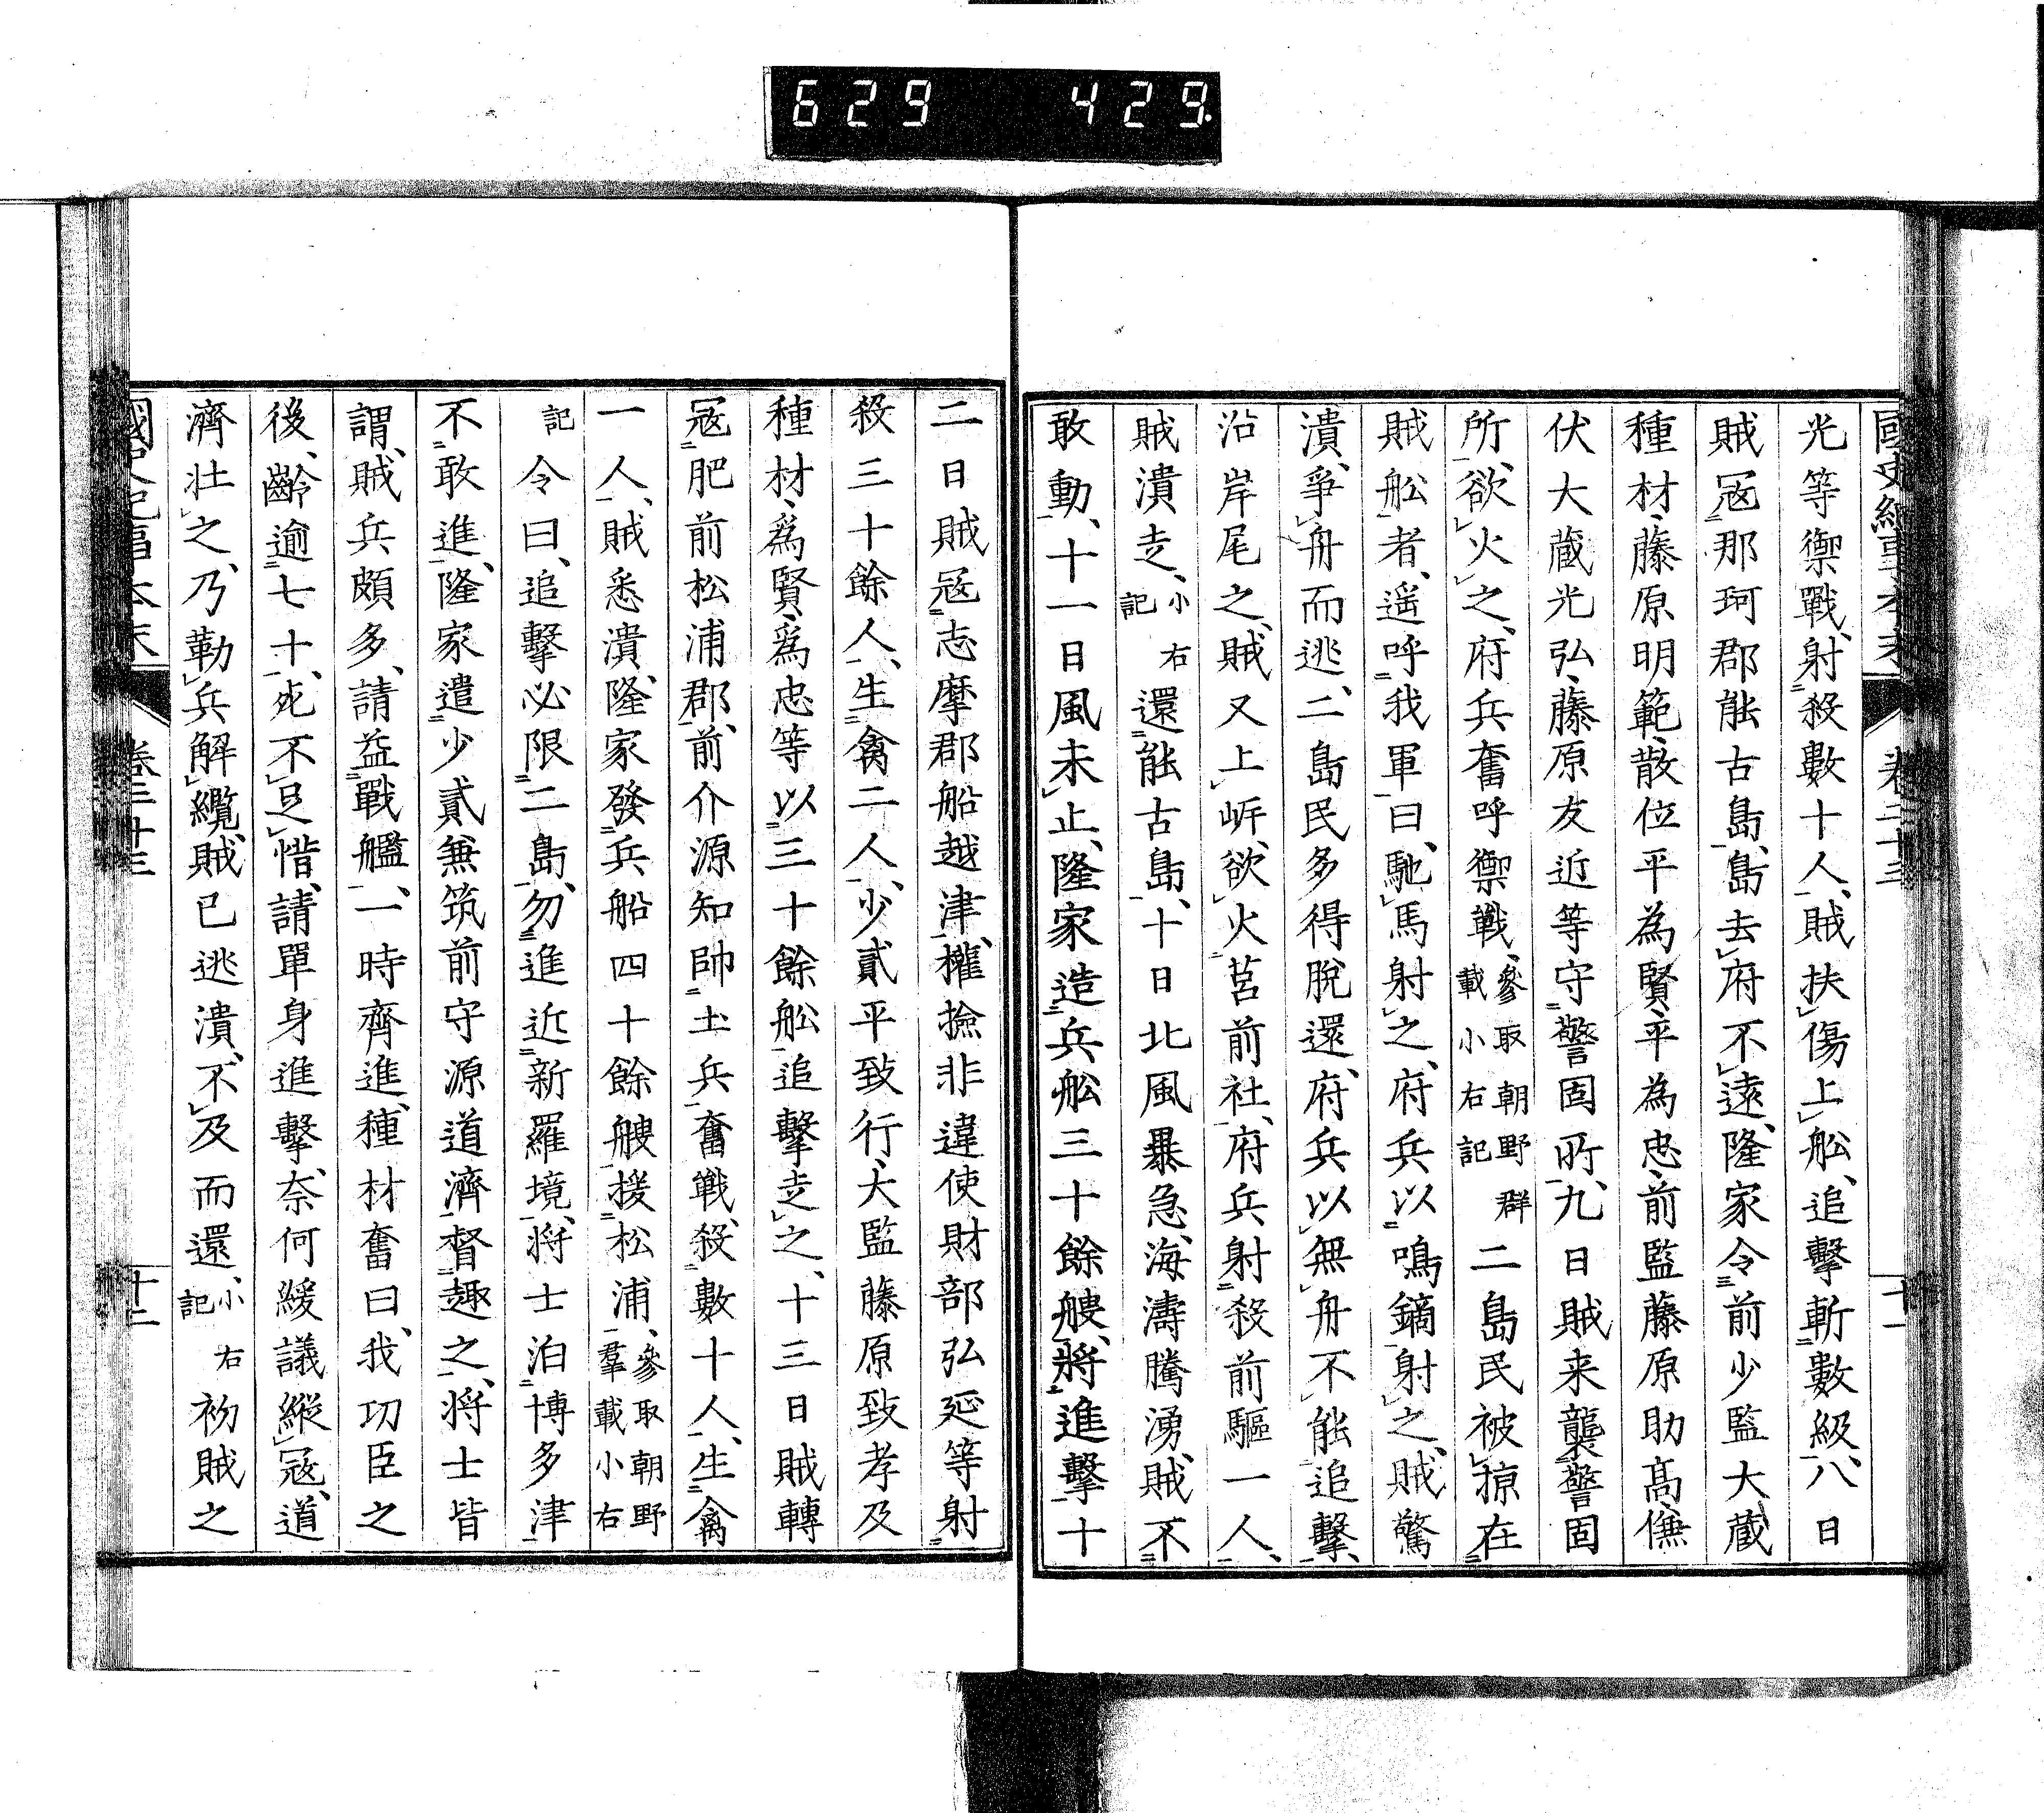 629 429
國史紀事本末 卷二十三 十一
光等禦戰、射殺數十人、賊扶傷上舩、追擊斬數級、八日
賊冦那珂郡能古島、島去府不遠、隆家令前少監大蔵
種材、藤原明範、散位平為賢、平為忠、前監藤原助髙、傔
伏大蔵光弘、藤原友近等守警固所、九日賊来襲警固
所、欲火之、府兵奮呼禦戰、參取朝野群載小右記二島民被掠在
賊舩者、遥呼我軍曰、馳馬射之、府兵以鳴鏑射之、賊驚
潰、爭舟而逃、二島民多得脫還、府兵以無舟不能追擊、
沿岸尾之、賊又上岸、欲火筥前社、府兵射殺前驅一人、
賊潰走、小右記還能古島、十日北風暴急、海濤騰湧、賊不
敢動、十一日風未止、隆家造兵舩三十餘艘、將進擊十
二日賊冦志摩郡船越津、權撿非違使財部弘延等射
殺三十餘人、生禽二人、少貳平致行、大監藤原致孝及
種材、爲賢、爲忠等以三十餘舩追擊走之、十三日賊轉
冦肥前松浦郡、前介源知帥土兵奮戰、殺數十人、生禽
一人、賊悉潰、隆家發兵船四十餘艘援松浦、參取朝野羣載小右
記令曰、追擊必限二島、勿進近新羅境、將士泊博多津
不敢進、隆家遣少貳兼筑前守源道濟督趣之、將士皆
謂、賊兵頗多、請益戰艦、一時齊進、種材奮曰、我功臣之
後、齡逾七十、死不足惜、請單身進擊、奈何緩議縱冦、道
濟壯之、乃勒兵解纜、賊已逃潰、不及而還、小右記初賊之
國史紀事本末 卷二十三 十二